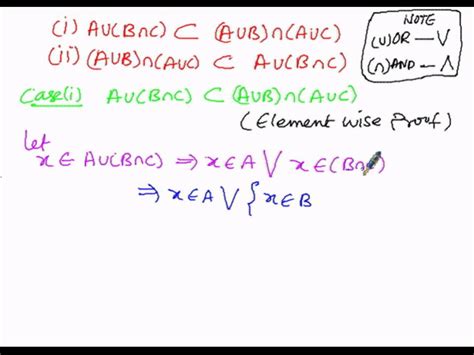 (i) AU(B∩C) ⊂ (AUB)∩(AUC)
(ii) (AUB)∩(AUC) ⊂ AU(B∩C)
NOTE
(U)OR — V
(∩)AND — Λ
Case(i) AU(B∩C) ⊂ (AUB)∩(AUC)
(Element wise Proof)
let
x ∈ AU(B∩C) ⇒ x∈A V x∈(B∩C)
⇒ x∈A V { x∈B